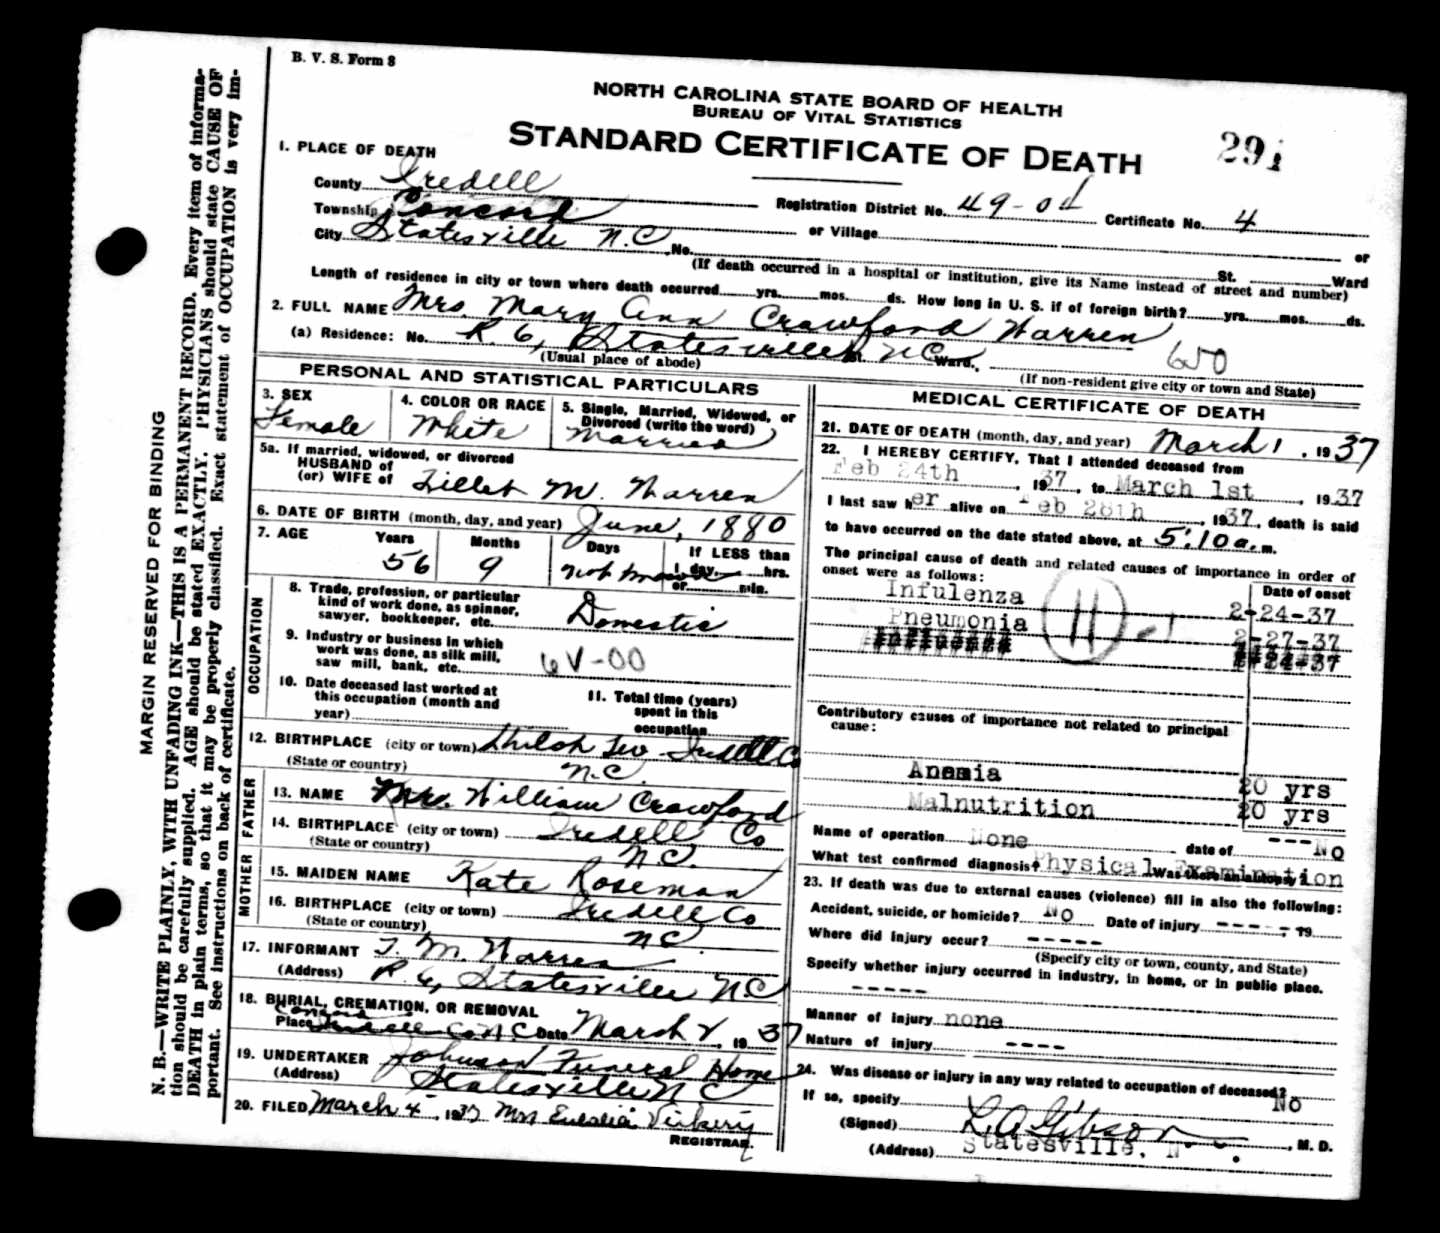 B. V. S. Form 8
NORTH CAROLINA STATE BOARD OF HEALTH
BUREAU OF VITAL STATISTICS
STANDARD CERTIFICATE OF DEATH
291
1. PLACE OF DEATH
County Iredell
Registration District No. 49-0d Certificate No. 4
Township Concord or Village
City Statesville N.C. No. St. Ward
(If death occurred in a hospital or institution, give its Name instead of street and number)
Length of residence in city or town where death occurred yrs. mos. ds. How long in U. S. if of foreign birth? yrs. mos. ds.
2. FULL NAME Mrs. Mary Ann Crawford Warren
(a) Residence: No. R. 6, Statesville St. NC Ward,
(Usual place of abode) (If non-resident give city or town and State)
PERSONAL AND STATISTICAL PARTICULARS
3. SEX Female
4. COLOR OR RACE White
5. Single, Married, Widowed, or Divorced (write the word) Married
5a. If married, widowed, or divorced
HUSBAND of
(or) WIFE of M. Warren
6. DATE OF BIRTH (month, day, and year) June, 1880
7. AGE Years 56 Months 9 Days not known If LESS than 1 day, hrs. or min.
OCCUPATION
8. Trade, profession, or particular kind of work done, as spinner, sawyer, bookkeeper, etc. Domestic
9. Industry or business in which work was done, as silk mill, saw mill, bank, etc. 6V-00
10. Date deceased last worked at this occupation (month and year)
11. Total time (years) spent in this occupation
12. BIRTHPLACE (city or town) Shiloh Iredell Co
(State or country) N.C.
FATHER
13. NAME Mr. William Crawford
14. BIRTHPLACE (city or town) Iredell Co
(State or country) N.C.
MOTHER
15. MAIDEN NAME Kate Roseman
16. BIRTHPLACE (city or town) Iredell Co
(State or country) NC.
17. INFORMANT T. M. Warren
(Address) R. 6, Statesville NC
18. BURIAL, CREMATION, OR REMOVAL
Concord
Place Iredell Co N.C. Date March 2, 1937
19. UNDERTAKER Johnson Funeral Home
(Address) Statesville N C
20. FILED March 4, 1937 Mrs Vickery
REGISTRAR.
MEDICAL CERTIFICATE OF DEATH
21. DATE OF DEATH (month, day, and year) March 1, 1937
22. I HEREBY CERTIFY, That I attended deceased from
Feb 24th, 1937, to March 1st, 1937
I last saw her alive on Feb 28th, 1937, death is said
to have occurred on the date stated above, at 5:10 a.m.
The principal cause of death and related causes of importance in order of
onset were as follows: Date of onset
Infulenza 2-24-37
Pneumonia 2-27-37
11
Contributory causes of importance not related to principal
cause:
Anemia 20 yrs
Malnutrition 20 yrs
Name of operation None date of ---No
What test confirmed diagnosis? Physical Examination Was there an autopsy?
23. If death was due to external causes (violence) fill in also the following:
Accident, suicide, or homicide? No Date of injury ----, 19
Where did injury occur? -----
(Specify city or town, county, and State)
Specify whether injury occurred in industry, in home, or in public place.
-----
Manner of injury none
Nature of injury ----
24. Was disease or injury in any way related to occupation of deceased?
If so, specify No
(Signed) L. A. Gibson, M. D.
(Address) Statesville, N
MARGIN RESERVED FOR BINDING
N. B.—WRITE PLAINLY, WITH UNFADING INK—THIS IS A PERMANENT RECORD. Every item of informa-
tion should be carefully supplied. AGE should be stated EXACTLY. PHYSICIANS should state CAUSE OF
DEATH in plain terms, so that it may be properly classified. Exact statement of OCCUPATION is very im-
portant. See instructions on back of certificate.